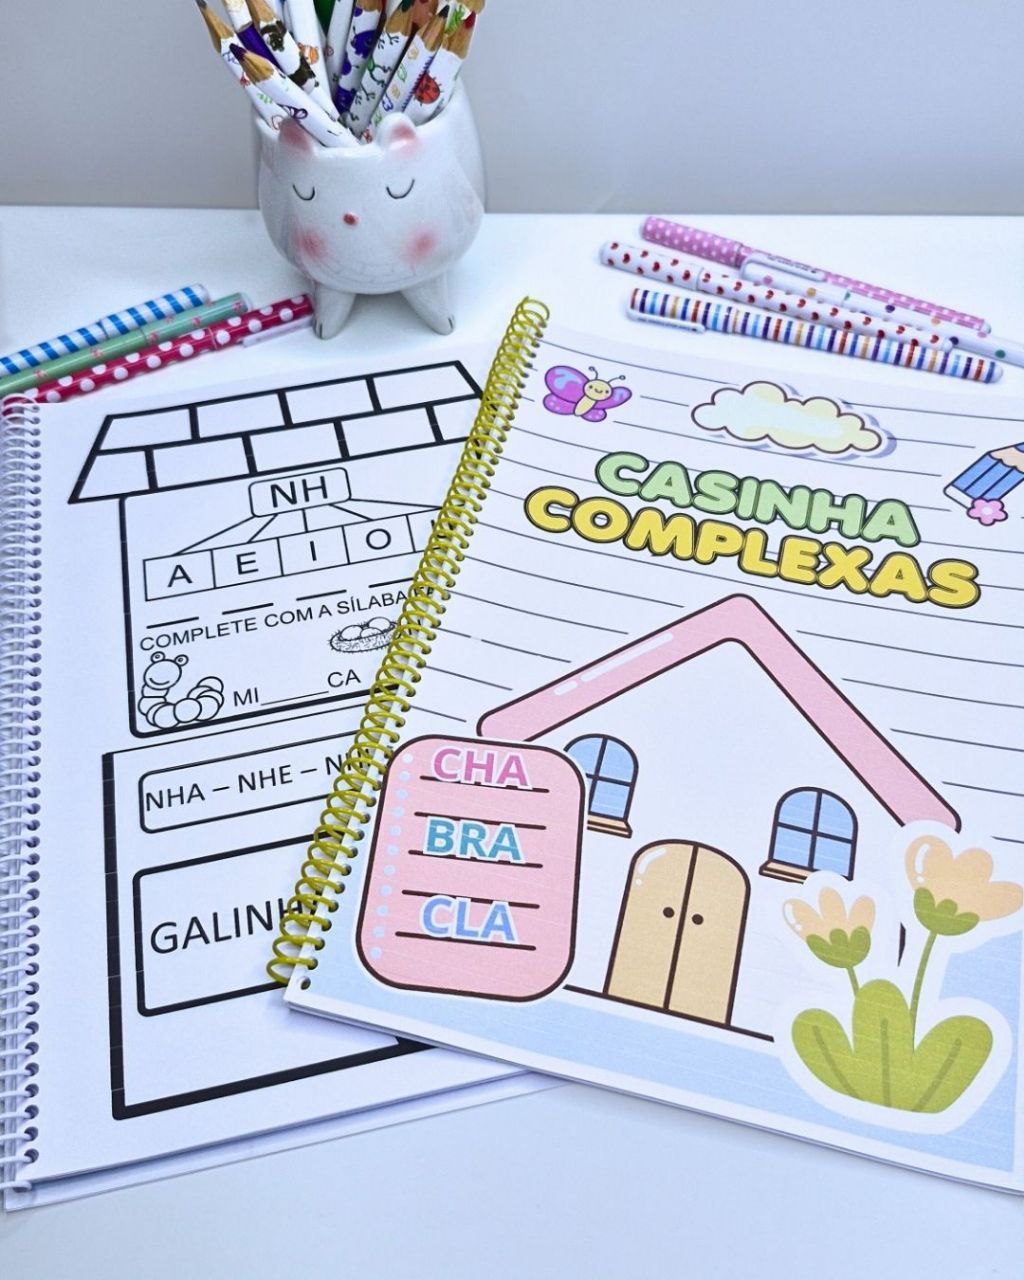 NH
A E I O
COMPLETE COM A SÍLABA
MI______CA
NHA – NHE –
CASINHA
COMPLEXAS
CHA
BRA
CLA